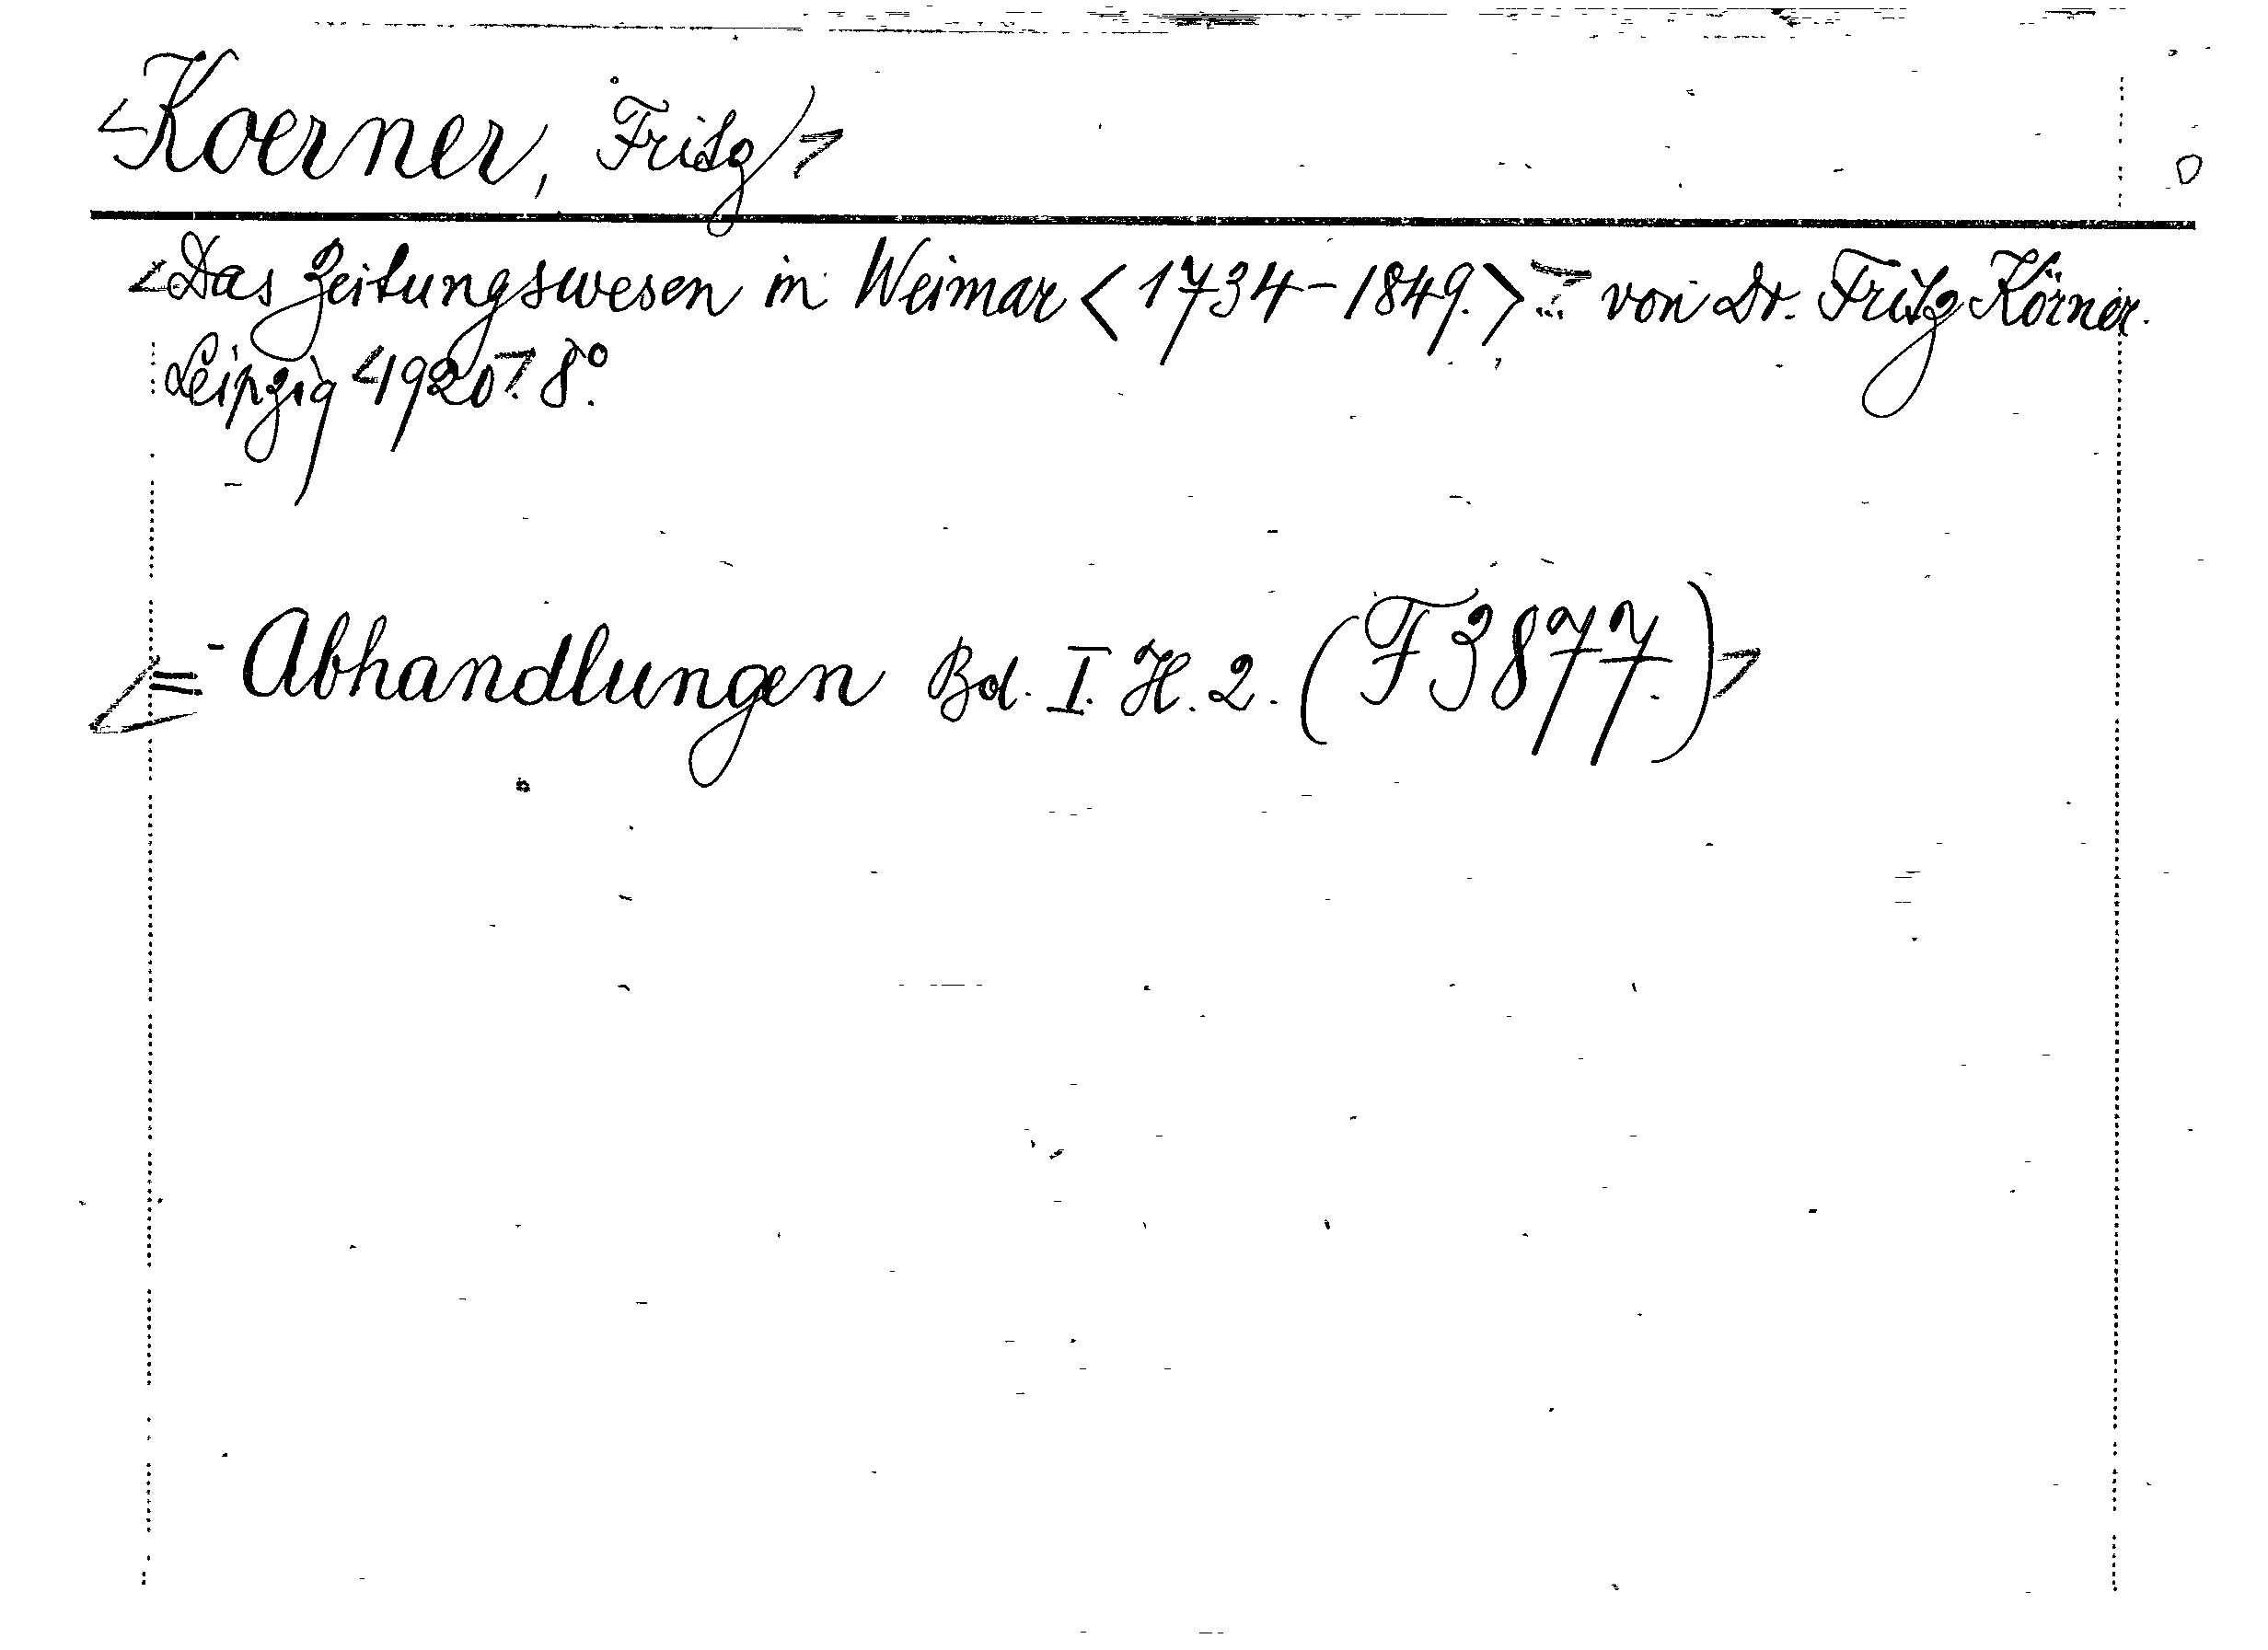 <Koerner, Fritz>
<Das Zeitungswesen in Weimar <1734-1849.>> von Dr. Fritz Körner.
Leipzig <1920>. 8°.
<= Abhandlungen Bd. I. H. 2. (F3877.)>